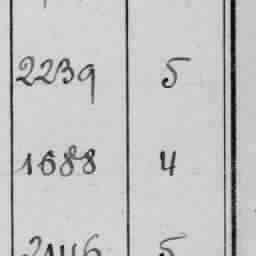 2239 5
1688 4
5